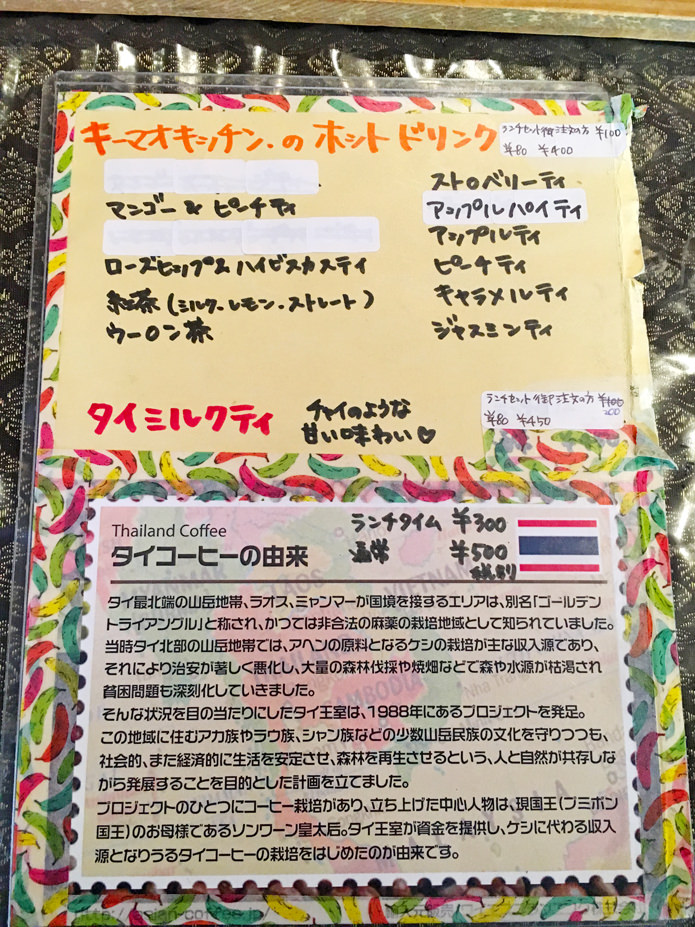 キーマオキッチン.の ホット ドリンク
ランチセット御注文の方 ¥100
¥80 ¥400
マンゴー & ピーチティ
ローズヒップ&ハイビスカスティ
紅茶(ミルク・レモン・ストレート)
ウーロン茶
ストロベリーティ
アップルパイティ
アップルティ
ピーチティ
キャラメルティ
ジャスミンティ
タイミルクティ
チャイのような
甘い味わい♡
ランチセット御注文の方 ¥100
200
¥80 ¥450
Thailand Coffee
タイコーヒーの由来
ランチタイム ¥300
通常 ¥500
税別
タイ最北端の山岳地帯、ラオス、ミャンマーが国境を接するエリアは、別名「ゴールデン
トライアングル」と称され、かつては非合法の麻薬の栽培地域として知られていました。
当時タイ北部の山岳地帯では、アヘンの原料となるケシの栽培が主な収入源であり、
それにより治安が著しく悪化し、大量の森林伐採や焼畑などで森や水源が枯渇され
貧困問題も深刻化していきました。
そんな状況を目の当たりにしたタイ王室は、1988年にあるプロジェクトを発足。
この地域に住むアカ族やラウ族、シャン族などの少数山岳民族の文化を守りつつも、
社会的、また経済的に生活を安定させ、森林を再生させるという、人と自然が共存しな
がら発展することを目的とした計画を立てました。
プロジェクトのひとつにコーヒー栽培があり、立ち上げた中心人物は、現国王(プミポン
国王)のお母様であるソンワーン皇太后。タイ王室が資金を提供し、ケシに代わる収入
源となりうるタイコーヒーの栽培をはじめたのが由来です。
http://asian-coffee.jp/